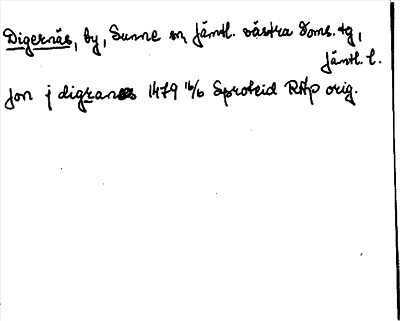 Digernäs, by, Sunne sn, Jämtl. västra doms. tg,
Jämtl. l.
Jon j digranes 1479 16/6 Sproteid RAp orig.